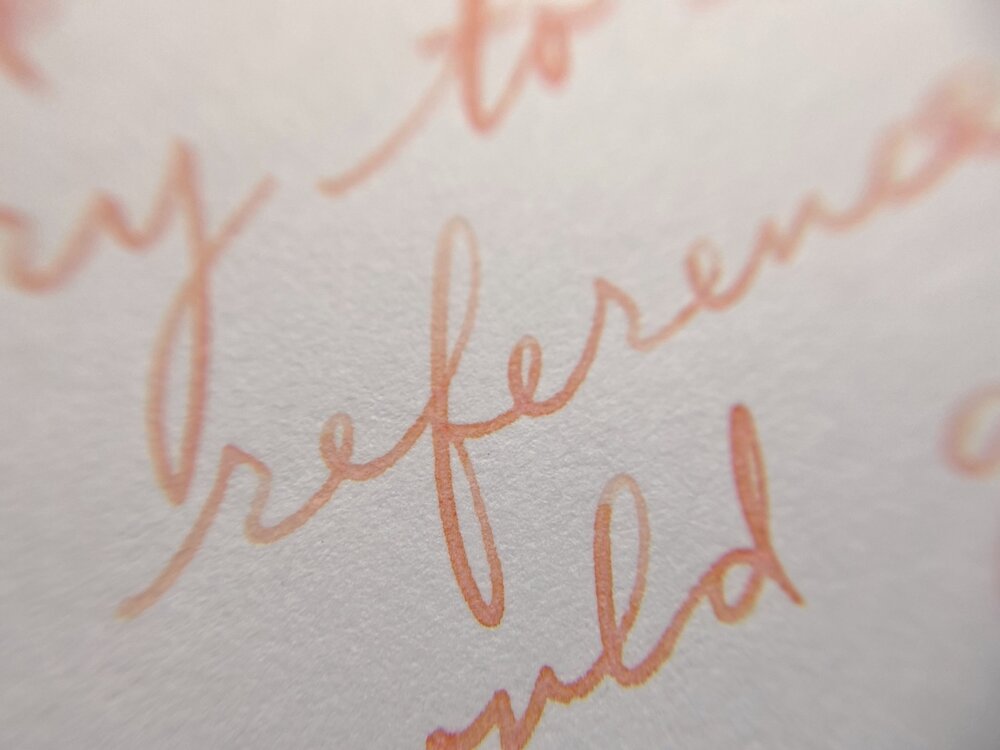 ry to
reference
uld